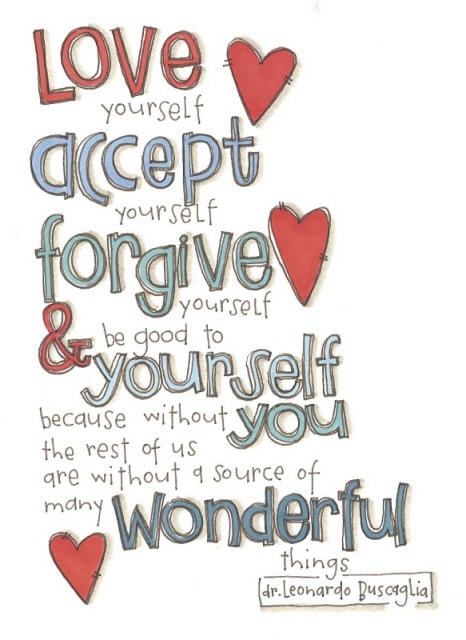 Love
yourself
accept
yourself
forgive
yourself
& be good to
yourself
because without you
the rest of us
are without a source of
many wonderful
things
dr. Leonardo Buscaglia